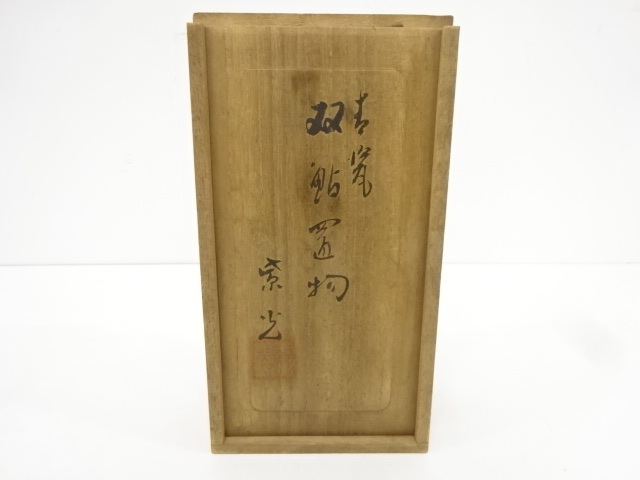 青瓷
双鮎置物
紫光